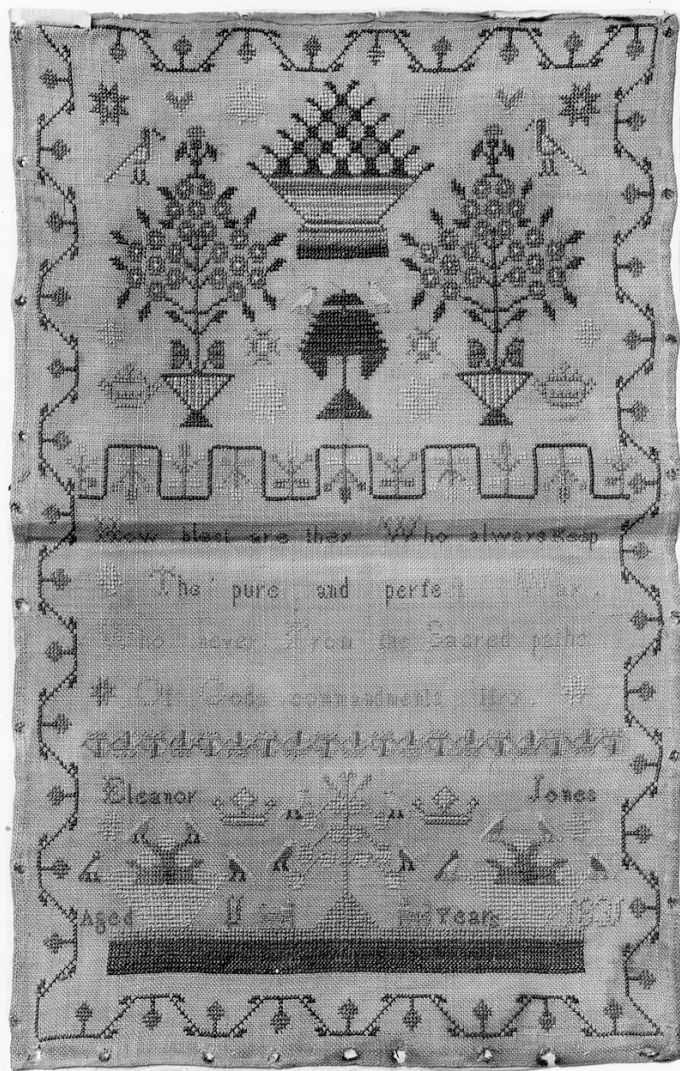 How blest are they Who always Keep
The pure and perfect Way.
Who never From the Sacred paths
Of Gods commandments
Eleanor Jones
Aged 11 Years 1831